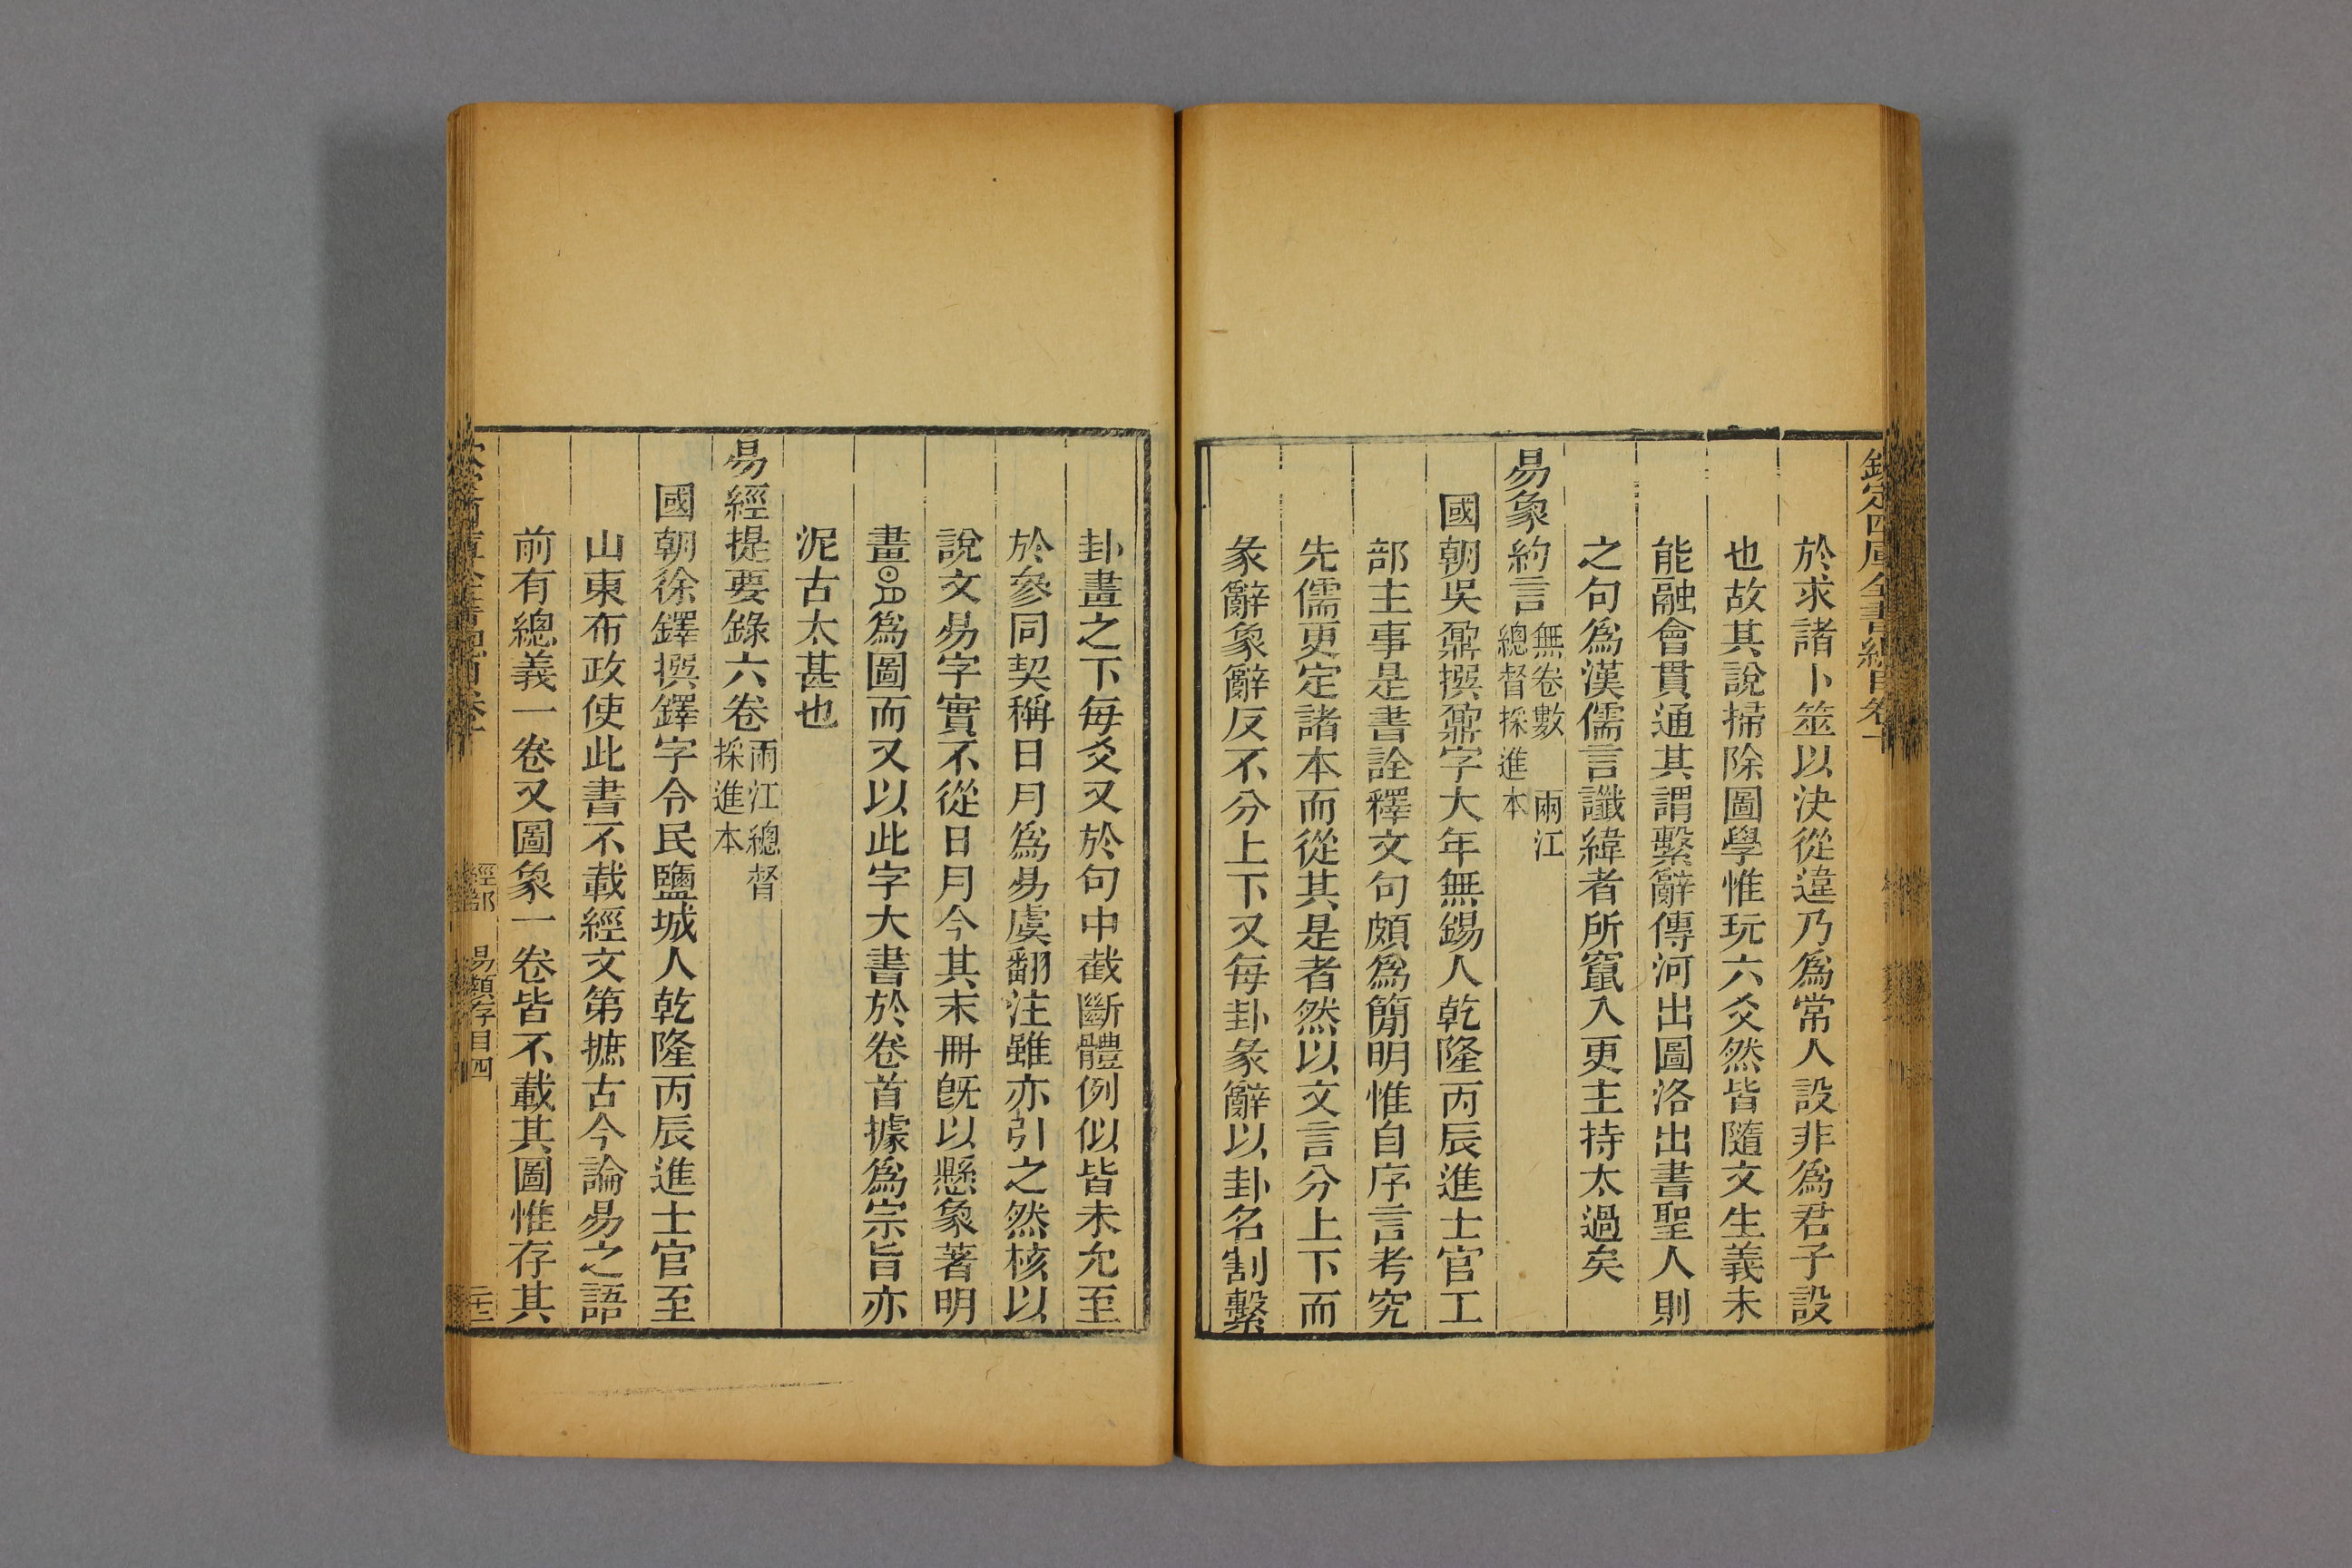 欽定四庫全書總目卷十
於求諸卜筮以決從違乃爲常人設非爲君子設
也故其說掃除圖學惟玩六爻然皆隨文生義未
能融會貫通其謂繫辭傳河出圖洛出書聖人則
之句爲漢儒言讖緯者所竄入更主持太過矣
易象約言無卷數 兩江
總督採進本
國朝吳鼐撰鼐字大年無錫人乾隆丙辰進士官工
部主事是書詮釋文句頗爲簡明惟自序言考究
先儒更定諸本而從其是者然以文言分上下而
彖辭象辭反不分上下又每卦彖辭以卦名割繫
卦畫之下每爻又於句中截斷體例似皆未允至
於參同契稱日月爲易虞翻注雖亦引之然核以
說文易字實不從日月今其末冊旣以懸象著明
畫爲圖而又以此字大書於卷首據爲宗旨亦
泥古太甚也
易經提要錄六卷兩江總督
採進本
國朝徐鐸撰鐸字令民鹽城人乾隆丙辰進士官至
山東布政使此書不載經文第摭古今論易之語
前有總義一卷又圖象一卷皆不載其圖惟存其
經部 易類存目四